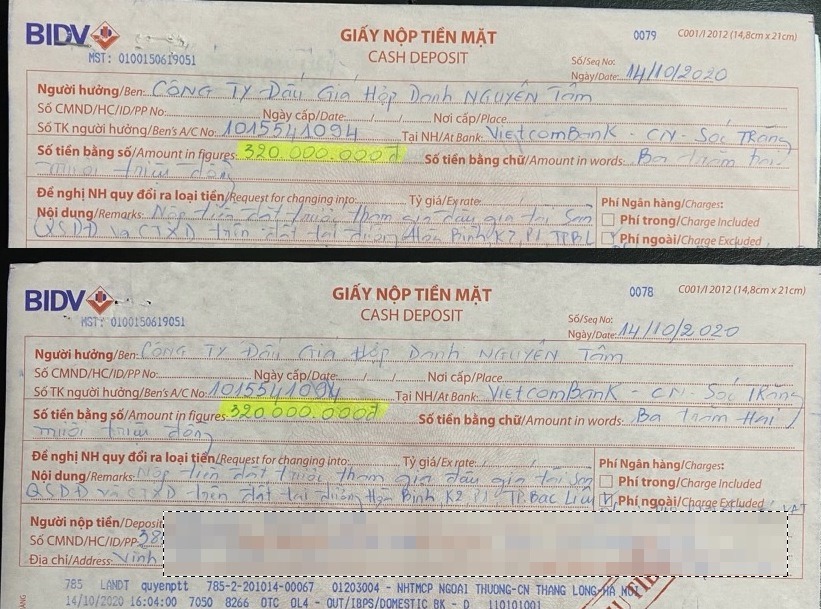 BIDV
GIẤY NỘP TIỀN MẶT
0079
C001/I 2012 (14,8cm x 21cm)
MST: 0100150619051
CASH DEPOSIT
Số/Seq No:
Ngày/Date: 14/10/2020
Người hưởng/Ben: CÔNG TY Đấu Giá Hợp Danh NGUYÊN Tâm
Số CMND/HC/ID/PP No: Ngày cấp/Date: / / Nơi cấp/Place
Số TK người hưởng/Ben's A/C No: 1015541094 Tại NH/At Bank: VietcomBank - CN - Sóc TRăng
Số tiền bằng số/Amount in figures: 320.000.000đ Số tiền bằng chữ/Amount in words: Ba trăm hai
mươi triệu đồng
Đề nghị NH quy đổi ra loại tiền/Request for changing into: Tỷ giá/Ex rate: Phí Ngân hàng/Charges:
Nội dung/Remarks: Nộp tiền đặt trước tham gia đấu giá tài sản Phí trong/Charge Included
QSDĐ và CTXD trên đất tại đường Hòa Bình, K2, P1, TPBL Phí ngoài/Charge Excluded
BIDV
GIẤY NỘP TIỀN MẶT
0078
C001/I 2012 (14,8cm x 21cm)
MST: 0100150619051
CASH DEPOSIT
Số/Seq No:
Ngày/Date: 14/10/2020
Người hưởng/Ben: CÔNG TY Đấu Giá Hợp Danh NGUYÊN Tâm
Số CMND/HC/ID/PP No: Ngày cấp/Date: / / Nơi cấp/Place
Số TK người hưởng/Ben's A/C No: 1015541094 Tại NH/At Bank: VIETCOMBANK - CN - Sóc TRăng
Số tiền bằng số/Amount in figures: 320.000.000đ Số tiền bằng chữ/Amount in words: Ba trăm Hai
mươi triệu đồng
Đề nghị NH quy đổi ra loại tiền/Request for changing into: Tỷ giá/Ex rate: Phí Ngân hàng/Charges:
Nội dung/Remarks: Nộp tiền đặt trước tham gia đấu giá tài sản Phí trong/Charge Included
QSDĐ và CTXD trên đất tại đường Hòa Bình, K2, P1, TP.Bạc Liêu Phí ngoài/Charge Excluded
Người nộp tiền/Deposit
Số CMND/HC/ID/PP 38
Địa chỉ/Address: Vĩnh
785 LANDT quyenptt 785-2-201014-00067 01203004 - NHTMCP NGOAI THUONG-CN THANG LONG-HA NOI
14/10/2020 16:04:00 7050 8266 OTC OL4 - OUT/IBPS/DOMESTIC BK - D 110101001